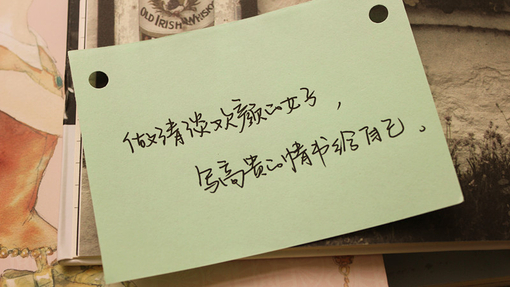 OLD IRISH WHISKY
做清淡欢颜的女子，
写高贵的情书给自己。